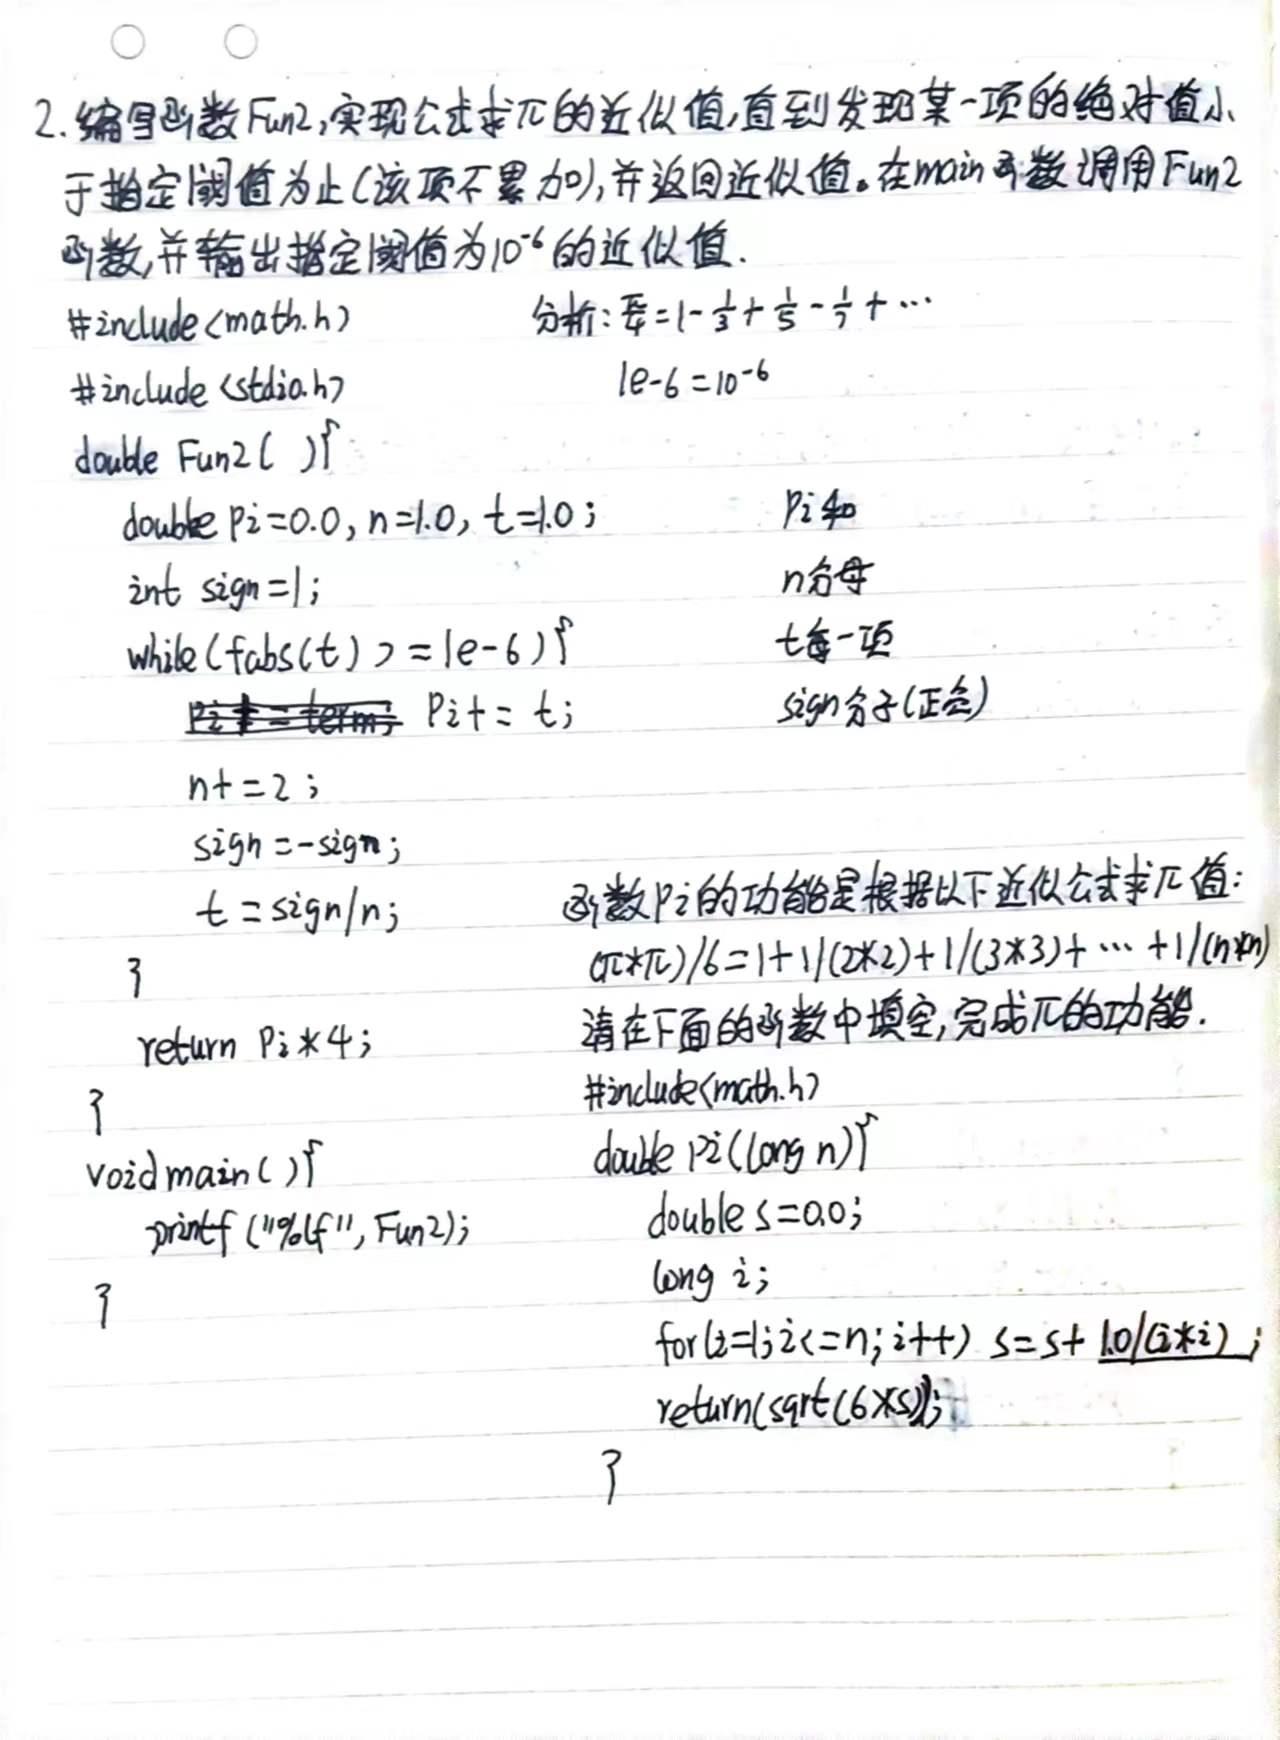 2.编写函数Fun2,实现公式求π的近似值,直到发现某一项的绝对值小
于指定阈值为止(该项不累加),并返回近似值。在main函数调用Fun2
函数,并输出指定阈值为10⁻⁶的近似值.
#include<math.h>
分析:π/4=1-1/3+1/5-1/7+…
#include<stdio.h>
1e-6=10⁻⁶
double Fun2( ){
double Pi=0.0, n=1.0, t=1.0;
Pi和
int sign=1;
n分母
while(fabs(t)>=1e-6){
t每一项
Pi+=t;
sign分子(正负)
n+=2;
sign=-sign;
t=sign/n;
}
return Pi*4;
}
void main(){
printf("%lf",Fun2);
}
函数Pi的功能是根据以下近似公式求π值:
(π*π)/6=1+1/(2*2)+1/(3*3)+…+1/(n*n)
请在下面的函数中填空,完成π的功能.
#include<math.h>
double Pi(long n){
double s=0.0;
long i;
for(i=1;i<=n;i++) s=s+1.0/(i*i);
return(sqrt(6*s));
}